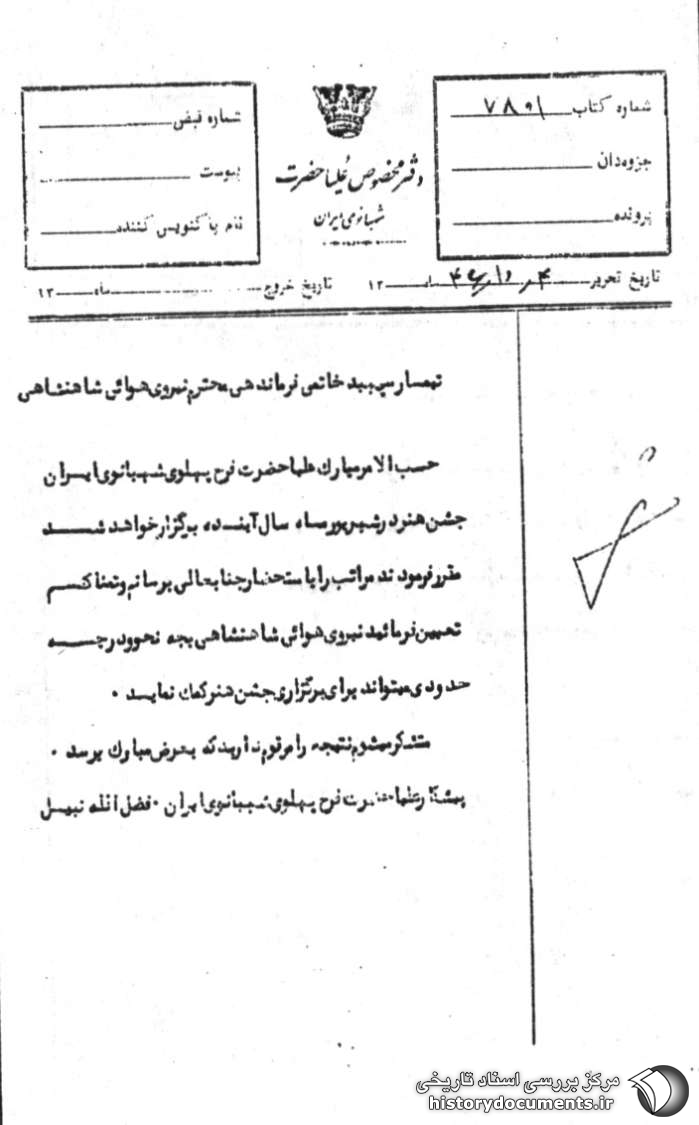 شماره کتاب
جزوه‌دان
پرونده
دفتر مخصوص علیاحضرت
شهبانوی ایران
شماره قبض
پیوست
نام پاکنویس کننده
تاریخ تحریر ۴ ر ۱۰ ر ۴۶ ۱۳
تاریخ خروج ماه ۱۳
تیمسار سپهبد خاتمی فرماندهی محترم نیروی هوائی شاهنشاهی
حسب الامر مبارك علیاحضرت فرح پهلوی شهبانوی ایران
جشن هنر در شهریور ماه سال آینده برگزار خواهد شد
مقرر فرمودند مراتب را باستحضار جنابعالی برسانم و تمنا کنم
تعیین فرمائید نیروی هوائی شاهنشاهی بچه نحوو درچه
حدودی میتواند برای برگزاری جشن هنر کمك نماید .
متشکر میشوم نتیجه را مرقوم دارید که بعرض مبارك برسد .
پیشکار علیاحضرت فرح پهلوی شهبانوی ایران . فضل الله نبیل
مرکز بررسی اسناد تاریخی
historydocuments.ir